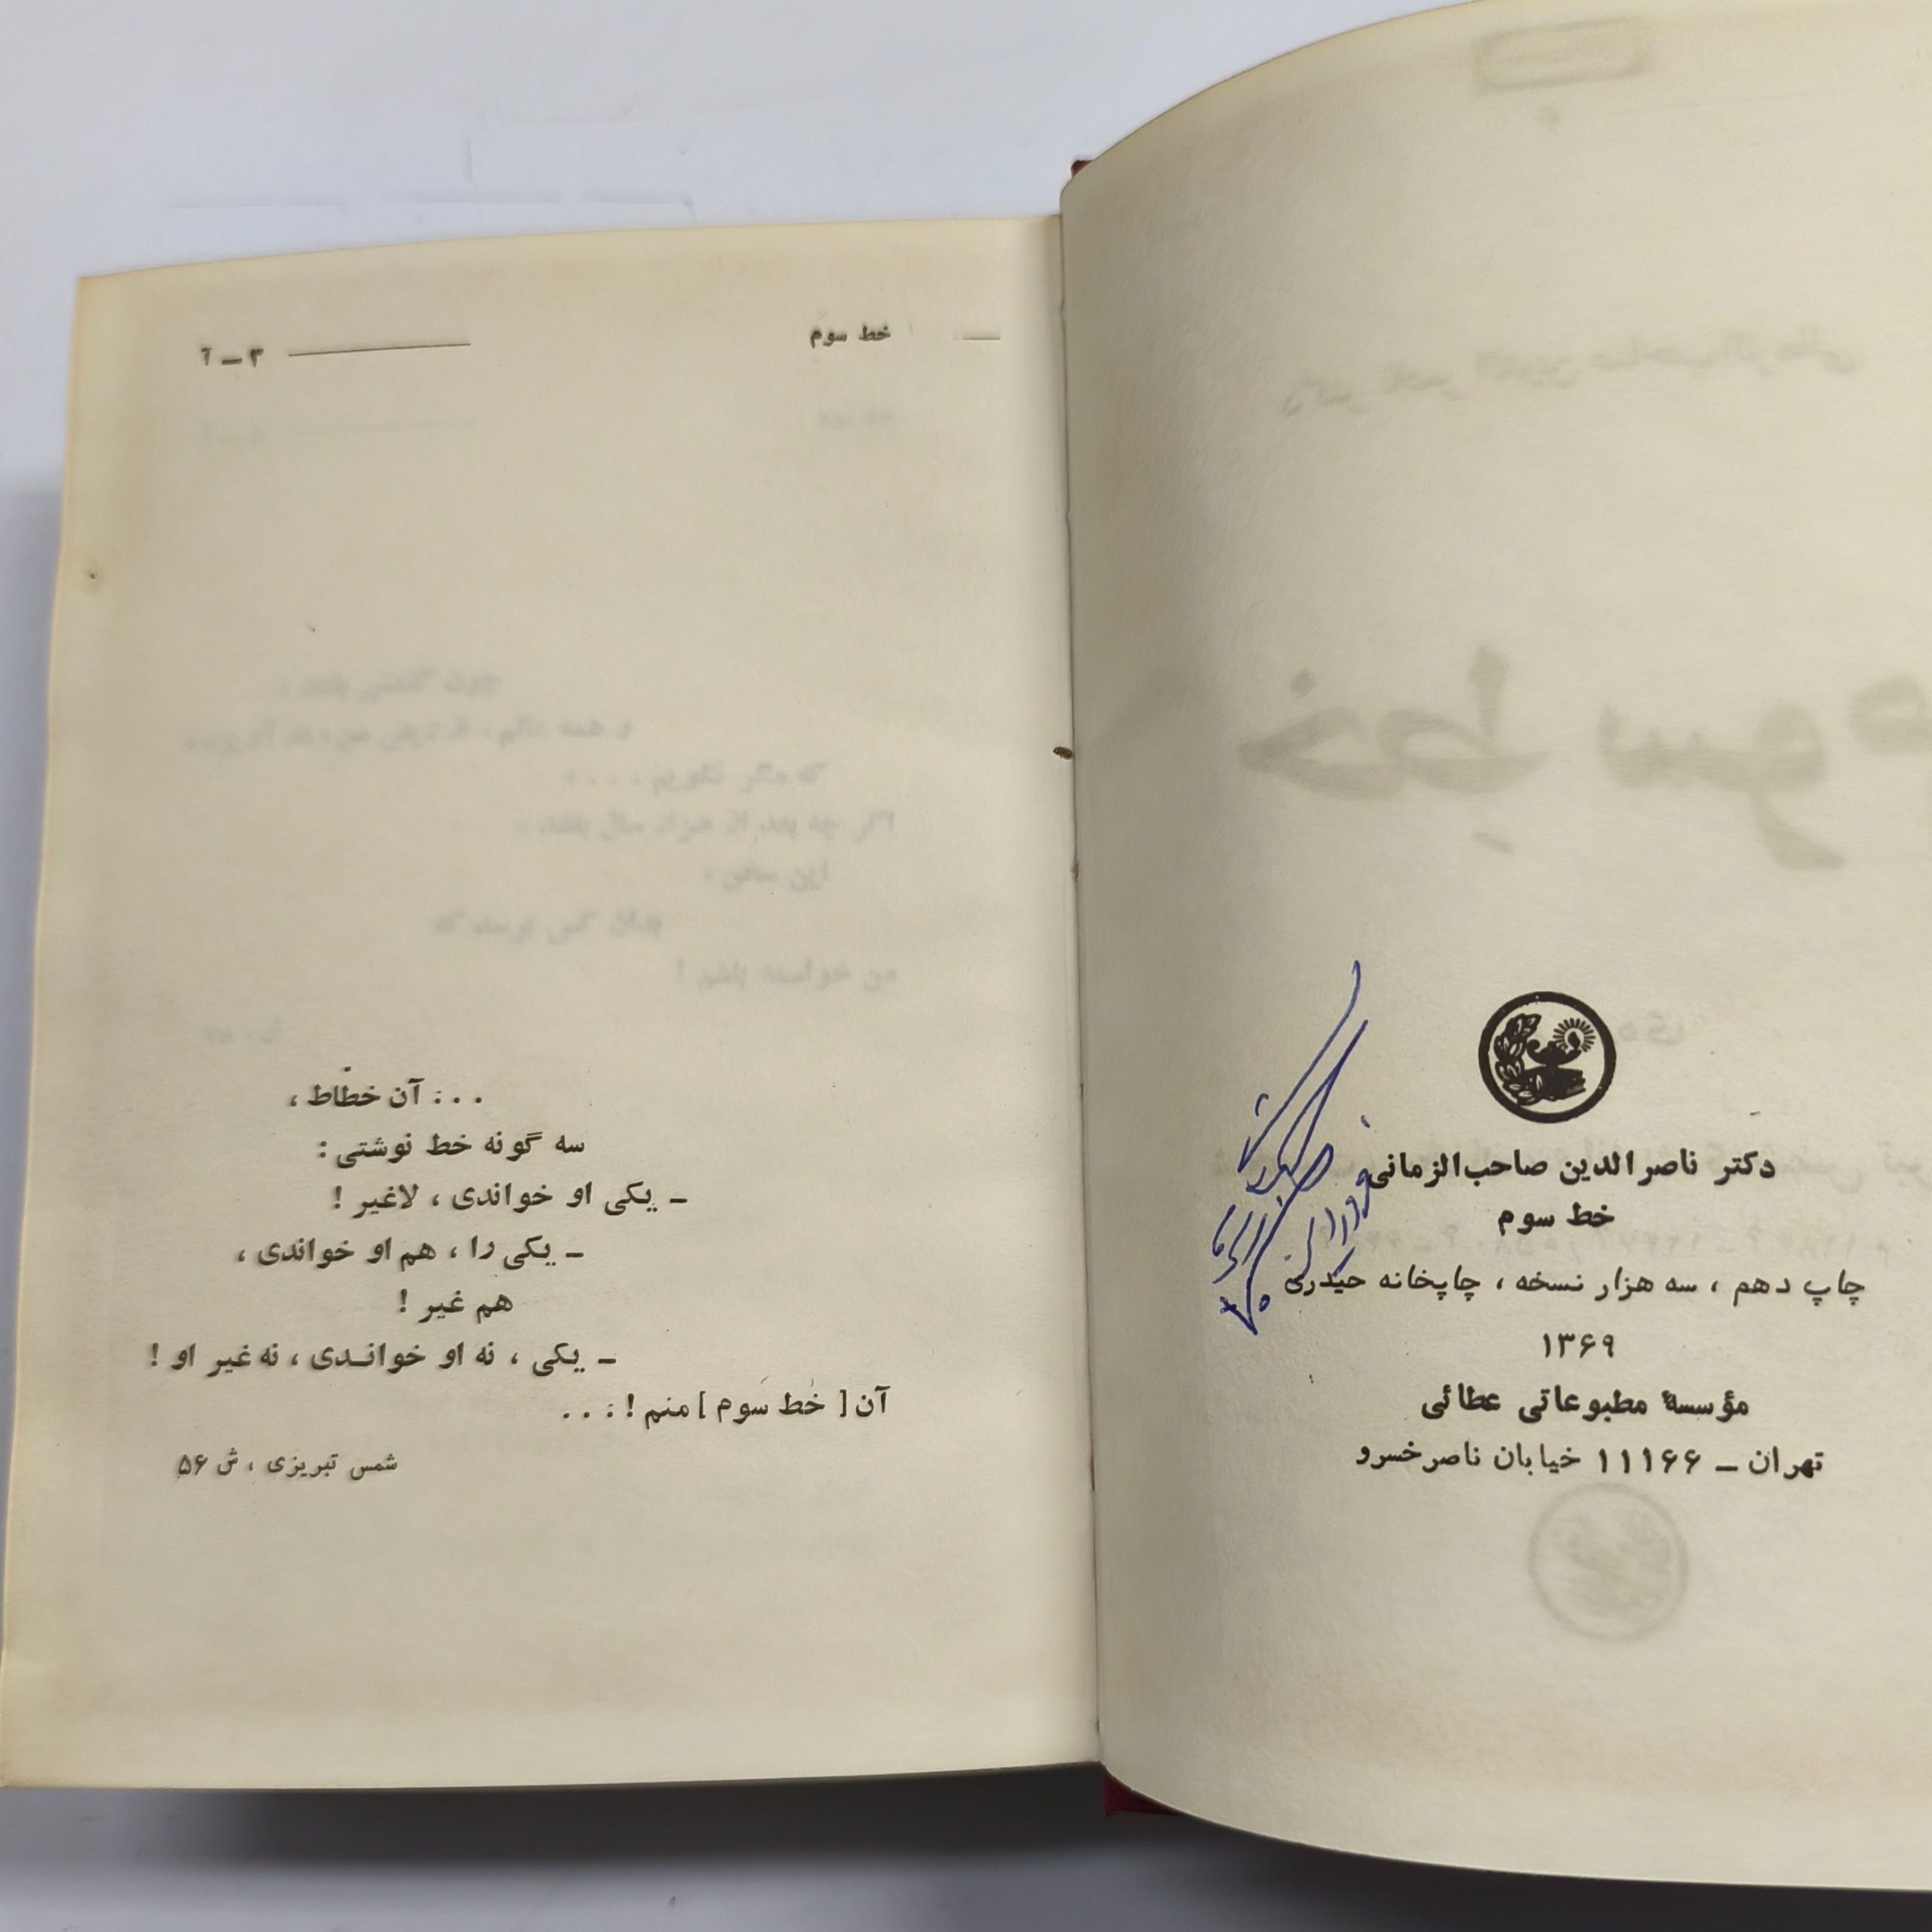 دکتر ناصرالدین صاحب‌الزمانی
خط سوم
چاپ دهم ، سه هزار نسخه ، چاپخانه حیدری
۱۳۶۹
مؤسسهٔ مطبوعاتی عطائی
تهران ــ ۱۱۱۶۶ خیابان ناصرخسرو
خط سوم
۳ ــ آ
. . . : آن خطاط ،
سه گونه خط نوشتی :
ــ یکی او خواندی ، لاغیر !
ــ یکی را ، هم او خواندی ،
هم غیر !
ــ یکی ، نه او خوانـدی ، نه غیر او !
آن [ خط سوم ] منم ! : . . .
شمس تبریزی ، ش ۵۶